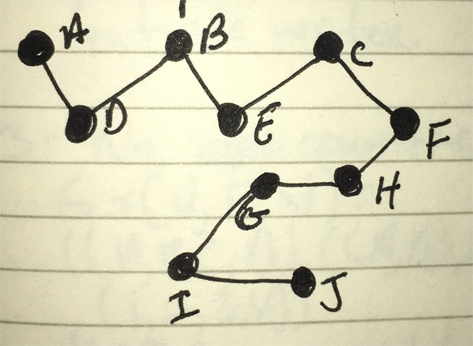 A B C
D E F
G H
I J